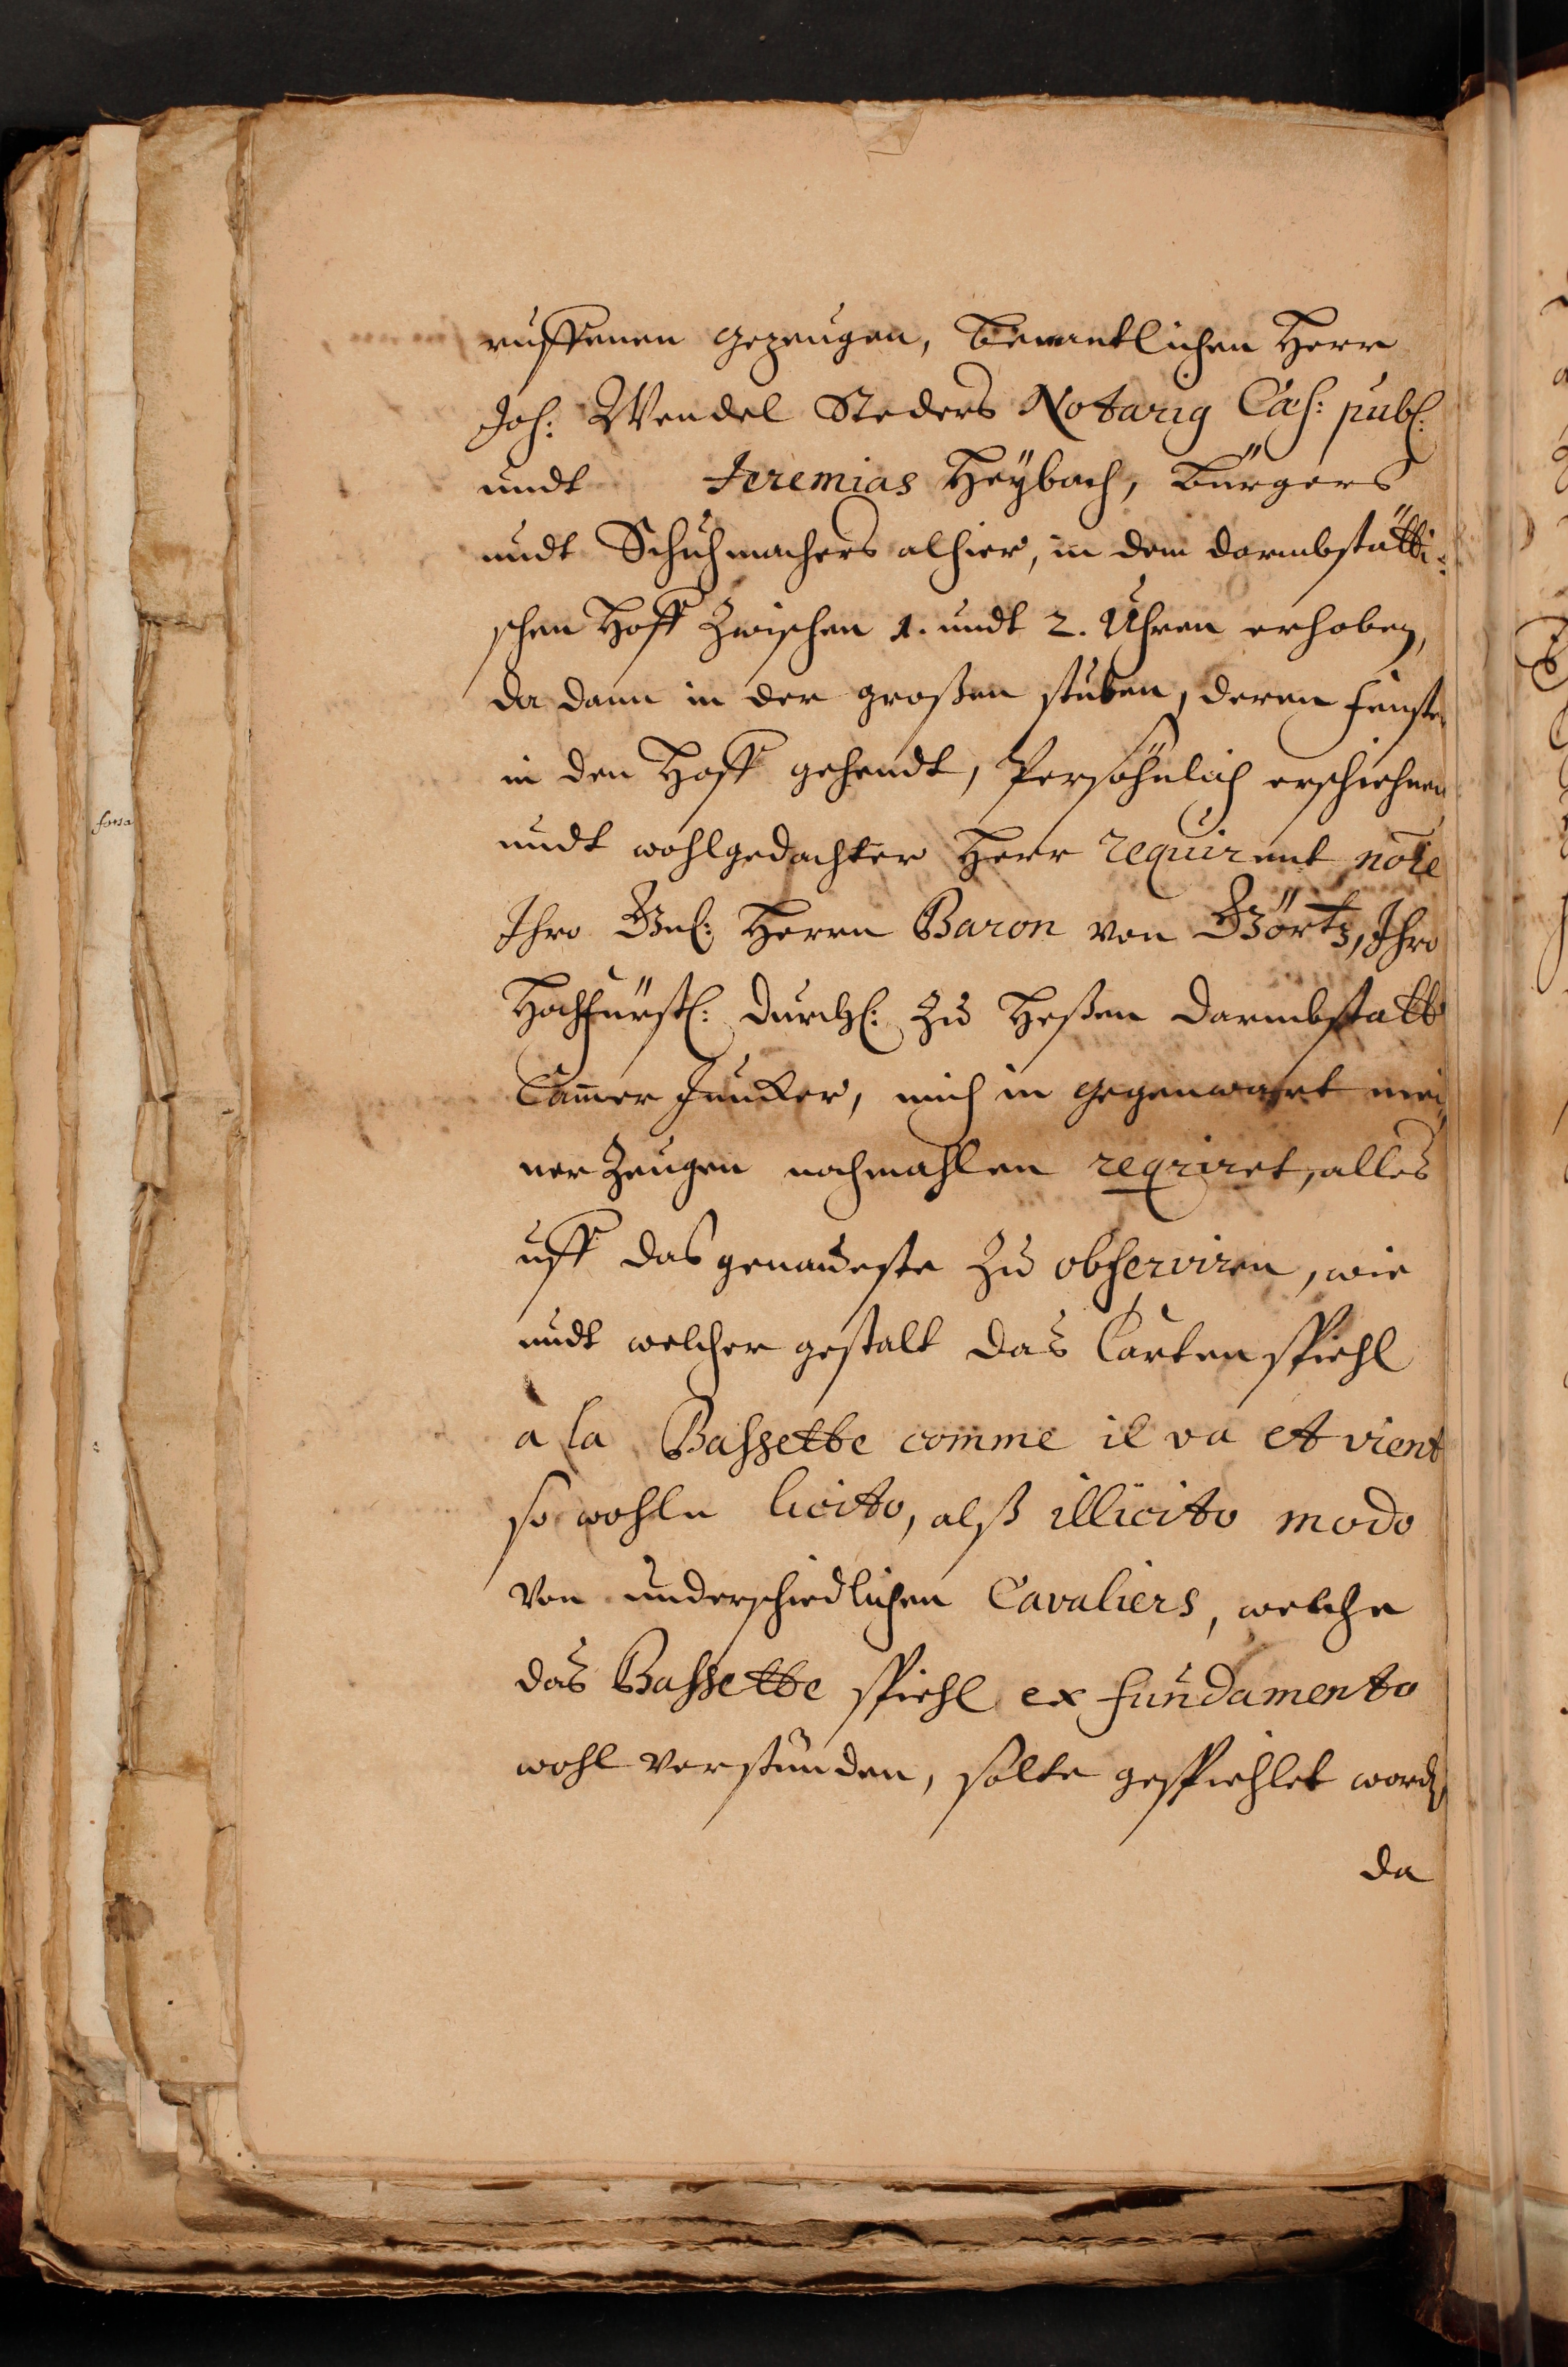 ruffenen gezeugen, benantlichen Herr
Joh: Wendel Steders Notarig Cæs: publ:
undt Jeremias Heÿbach, Bürgers
undt Schuhmachers alhier, in dem darmbstätti-
schen Hoff zwischen 1. undt 2. Uhren erhoben,
da dann in der großen stuben, deren fenster
in den Hoff gehendt, Persöhnlich erschiehnen
undt wohlgedachter Herr requirent nõie
Ihro Gnl: Herrn Baron von Görtz, Ihro
Hochfürstl: Durchl: zu Heßen Darmbstatt
Cam̄er Juncker, mich in gegenwart mei
ner Zeugen nochmahlen reqriret, alles
uff das genaueste zu observiren, wie
undt welcher gestalt das Cartenspiehl
a la Bassette comme il va et vient
so wohln licito, alß illicito modo
von underschiedlichen Cavaliers, welche
das Bassette spiehl ex fundamento
wohl verstünden, solte gespiehlet werd,
da
forsa